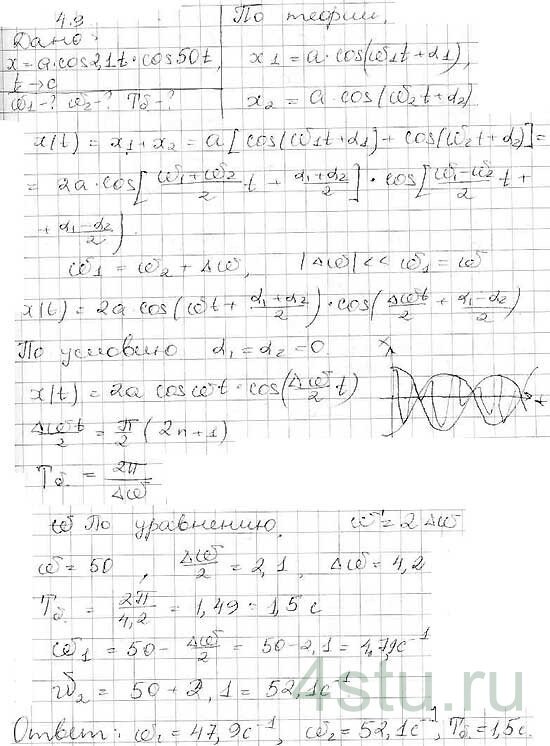 4.9
Дано:
x = a·cos2,1t·cos50t,
t → c
ω1-? ω2-? Tδ-?
По теории,
x1 = a·cos(ω1t+α1),
x2 = a·cos(ω2t+α2)
x(t) = x1 + x2 = a[cos(ω1t+α1) + cos(ω2t+α2)] =
= 2a·cos[(ω1+ω2)/2 t + (α1+α2)/2]·cos[(ω1-ω2)/2 t +
+ (α1-α2)/2]
ω1 = ω2 + Δω, |Δω| << ω1 = ω
x(t) = 2a·cos(ωt + (α1+α2)/2)·cos(Δωt/2 + (α1-α2)/2)
По условию α1 = α2 = 0.
x(t) = 2a cosωt·cos(Δω/2 t)
x
t
Δωt/2 = π/2 (2n+1)
Tδ = 2π/Δω
По уравнению, ω = 2Δω
ω = 50, Δω/2 = 2,1, Δω = 4,2
Tδ = 2π/4,2 = 1,49 = 1,5 c
ω1 = 50 - Δω/2 = 50-2,1 = 47,9c⁻¹
ω2 = 50 + 2,1 = 52,1c⁻¹
4stu.ru
Ответ: ω1 = 47,9c⁻¹, ω2 = 52,1c⁻¹, Tδ = 1,5c.